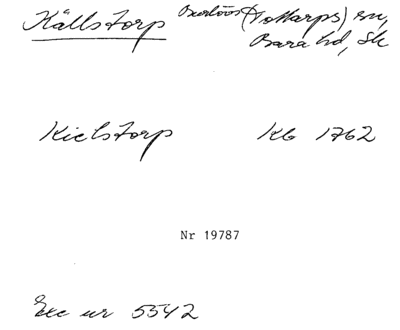 Källstorp Oxerlöös (Tottarps) sn,
Bara hd, Sk
Kielstorp Kb 1762
Nr 19787
Exc ur 5542